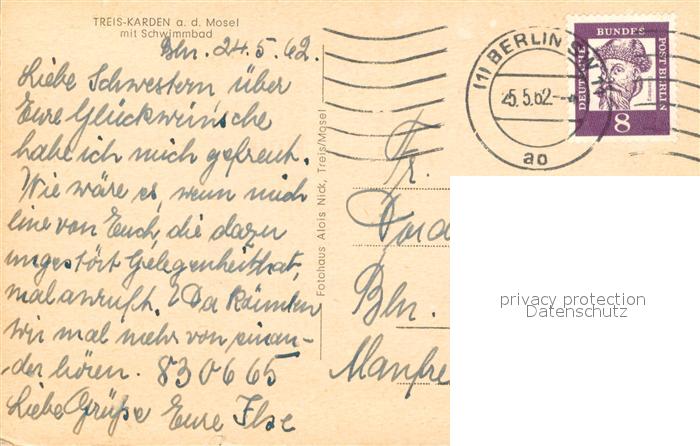 TREIS-KARDEN a. d. Mosel
mit Schwimmbad
Bln. 24.5.62.
Liebe Schwestern über
Eure Glückwünsche
habe ich mich gefreut.
Wie wäre es, wenn mich
eine von Euch, die dazu
ungestört Gelegenheit hat,
mal anruft. Da könnten
wir mal mehr von einan-
der hören. 830665
Liebe Grüße Eure Ilse
Fotohaus Alois Nick, Treis/Mosel
Fr.
Bln.
Manfre
(1) BERLIN SW
25.5.62.
ao
DEUTSCHE BUNDES POST BERLIN
8
privacy protection
Datenschutz